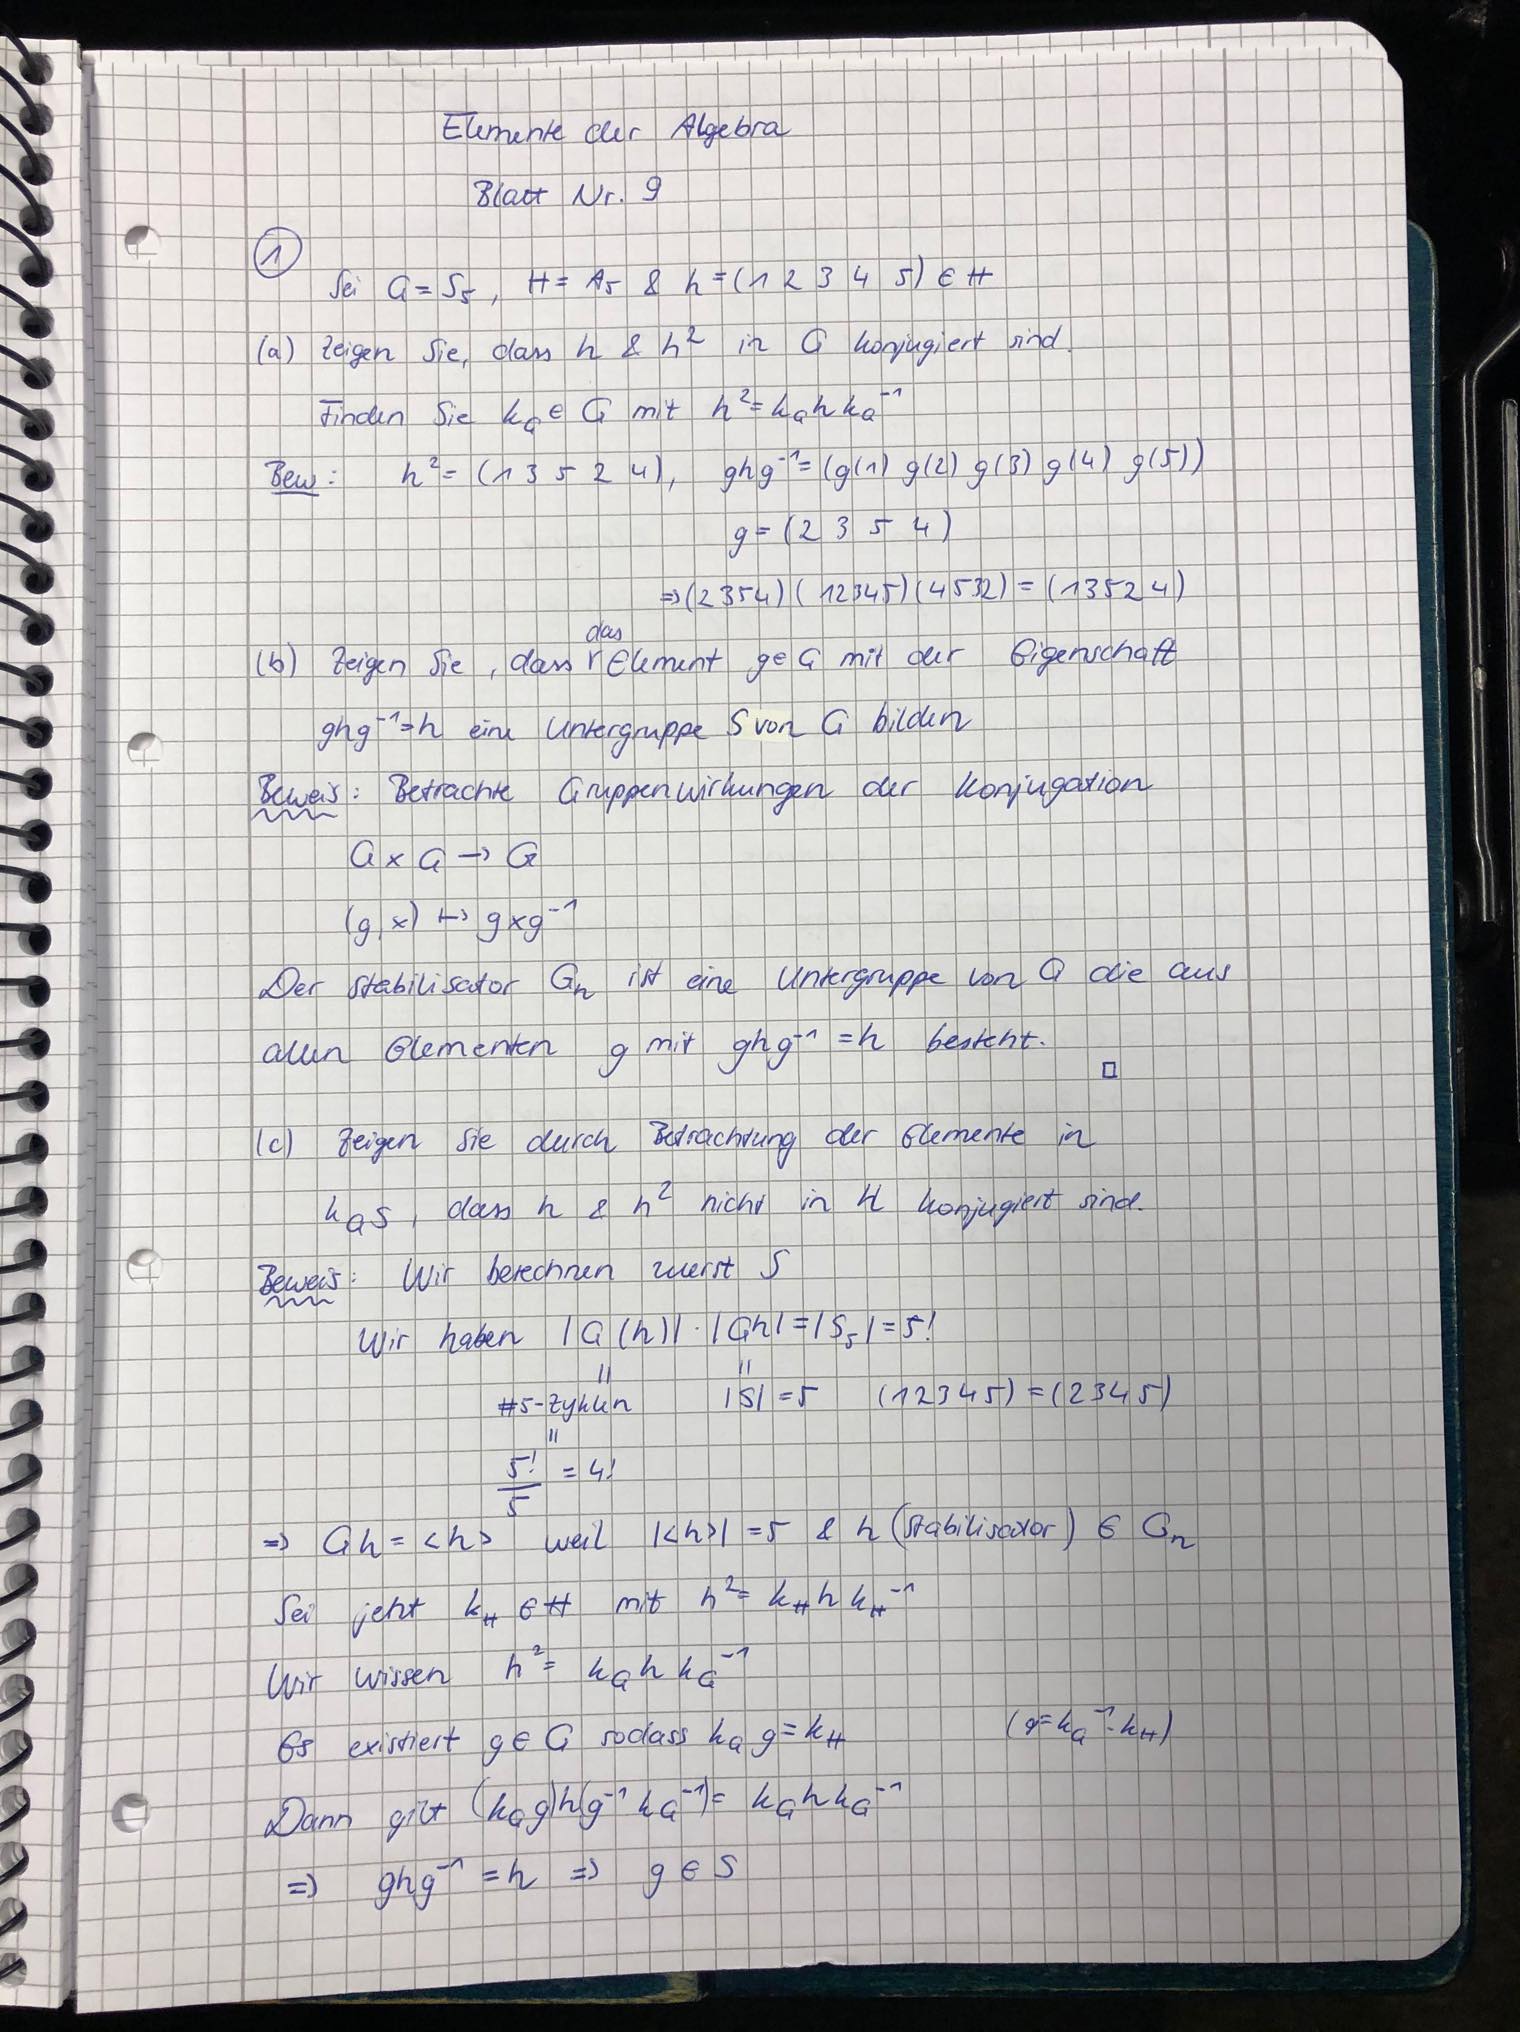 Elemente der Algebra
Blatt Nr. 9
①
Sei G = S₅, H = A₅ & h = (1 2 3 4 5) ∈ H
(a) Zeigen Sie, dass h & h² in G konjugiert sind.
Finden Sie k_G ∈ G mit h² = k_G h k_G⁻¹
Bew: h² = (1 3 5 2 4), ghg⁻¹ = (g(1) g(2) g(3) g(4) g(5))
g = (2 3 5 4)
⇒ (2354) (12345) (4532) = (13524)
das
(b) Zeigen Sie, dass Element g ∈ G mit der Eigenschaft
ghg⁻¹ = h eine Untergruppe S von G bilden
Beweis: Betrachte Gruppenwirkungen der Konjugation
G × G → G
(g, x) ↦ gxg⁻¹
Der Stabilisator G_h ist eine Untergruppe von G die aus
allen Elementen g mit ghg⁻¹ = h besteht.
□
(c) Zeigen Sie durch Betrachtung der Elemente in
k_G S, dass h & h² nicht in H konjugiert sind.
Beweis: Wir berechnen zuerst S
Wir haben |G(h)| · |Gh| = |S₅| = 5!
= =
#5-Zykeln |S| = 5 (12345) = (2345)
=
5!/5 = 4!
⇒ Gh = <h> weil |<h>| = 5 & h (Stabilisator) ∈ G_h
Sei jetzt k_H ∈ H mit h² = k_H h k_H⁻¹
Wir wissen h² = k_G h k_G⁻¹
Es existiert g ∈ G sodass k_G g = k_H (g = k_G⁻¹ · k_H)
Dann gilt (k_G g)h(g⁻¹ k_G⁻¹) = k_G h k_G⁻¹
⇒ ghg⁻¹ = h ⇒ g ∈ S